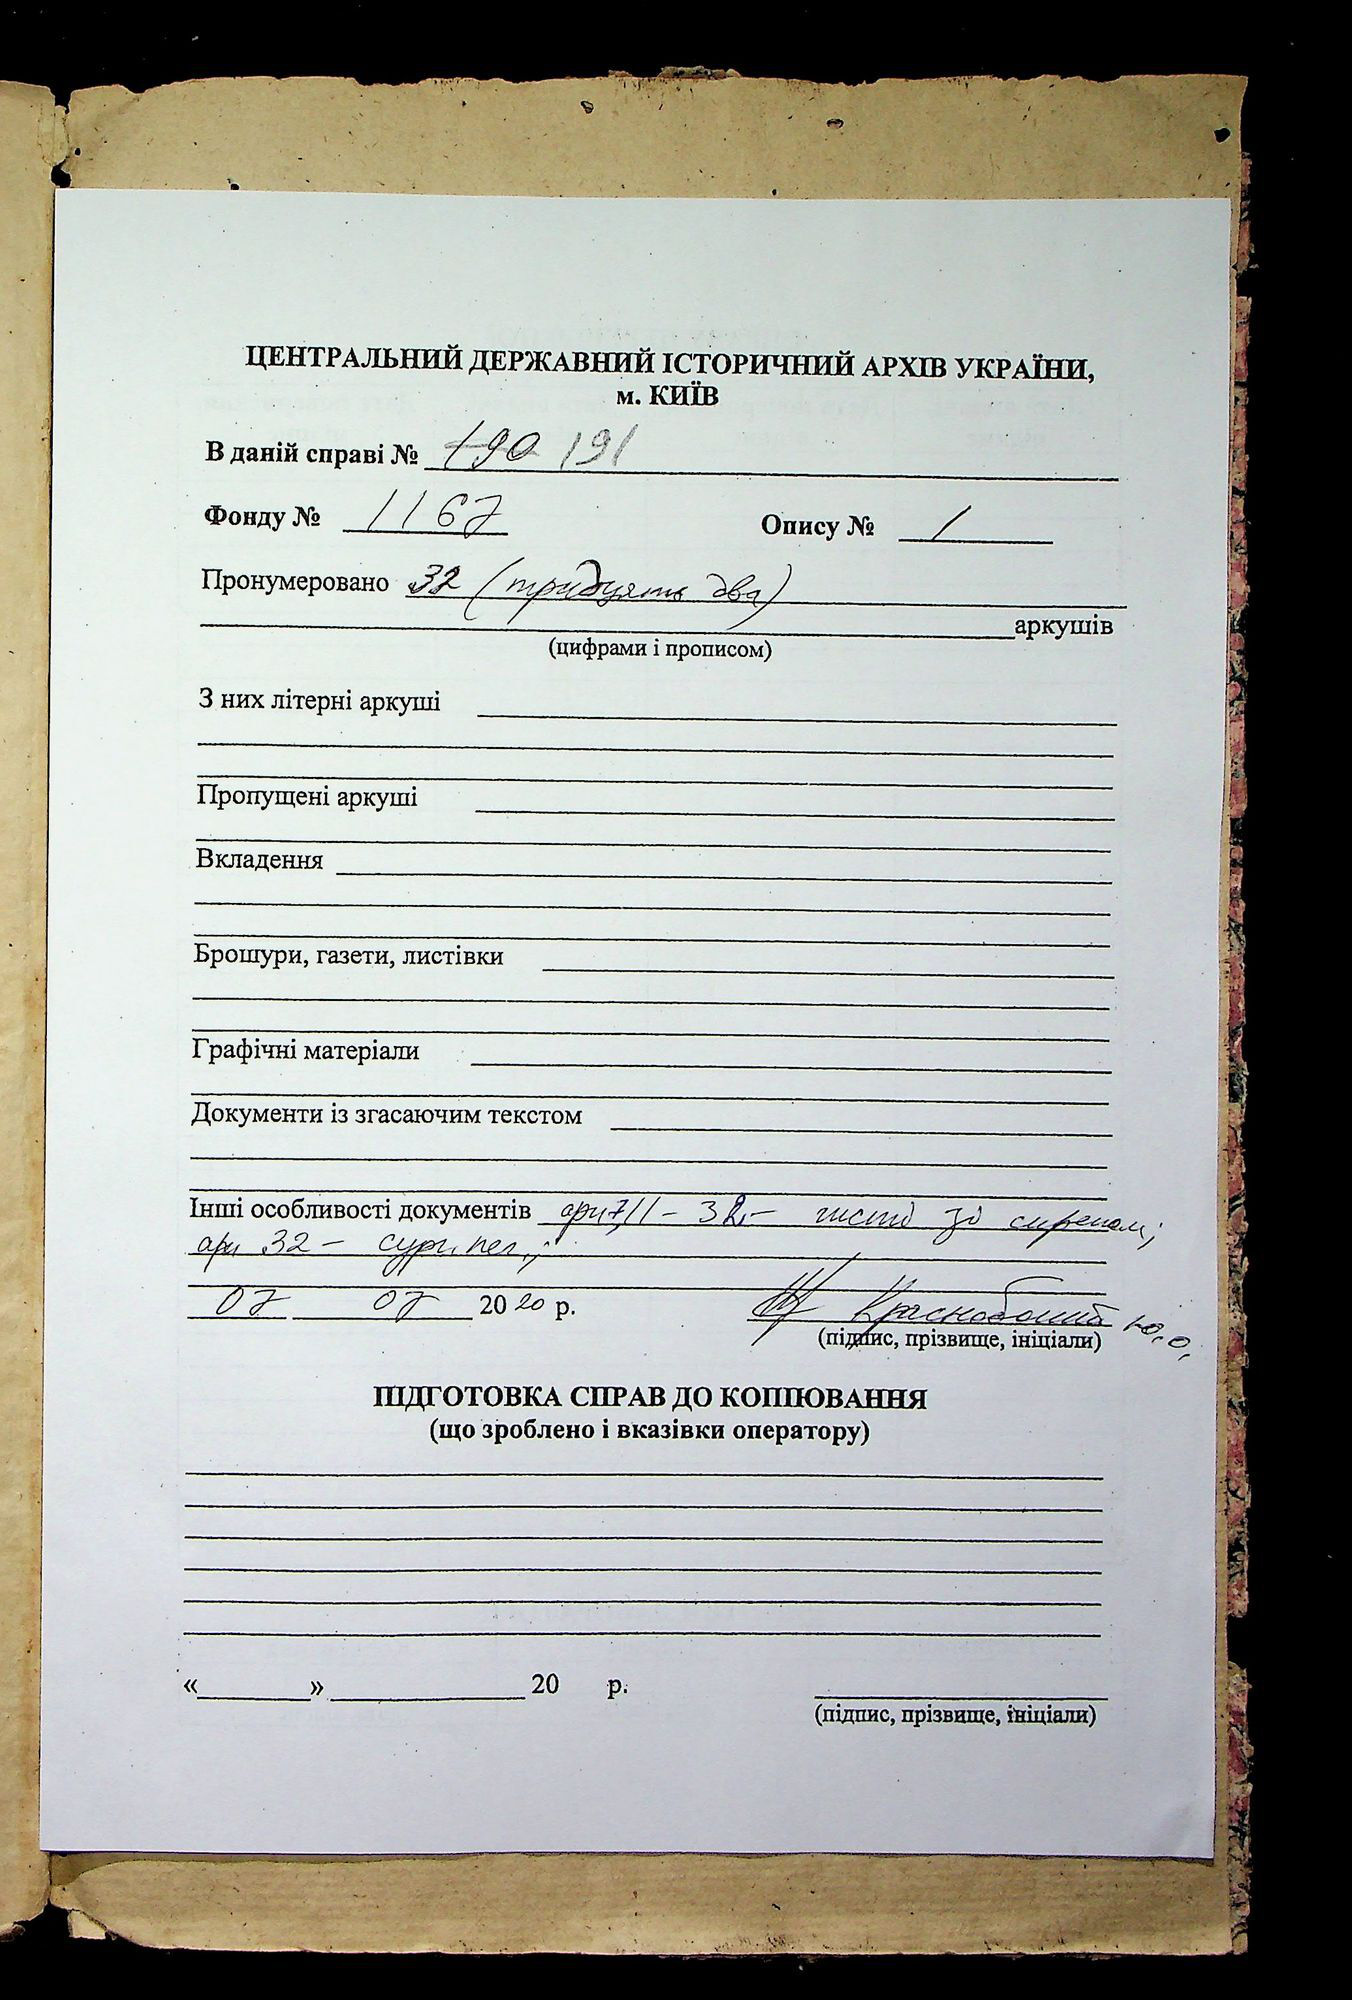 ЦЕНТРАЛЬНИЙ ДЕРЖАВНИЙ ІСТОРИЧНИЙ АРХІВ УКРАЇНИ,
м. КИЇВ
В даній справі № 190 191
Фонду № 1167 Опису № 1
Пронумеровано 32 (тридцять два)
аркушів
(цифрами і прописом)
З них літерні аркуші
Пропущені аркуші
Вкладення
Брошури, газети, листівки
Графічні матеріали
Документи із згасаючим текстом
Інші особливості документів 32
арк 32 –
07 07 2020 р. Ю.О.
(підпис, прізвище, ініціали)
ПІДГОТОВКА СПРАВ ДО КОПІЮВАННЯ
(що зроблено і вказівки оператору)
«  »  20  р.
(підпис, прізвище, ініціали)